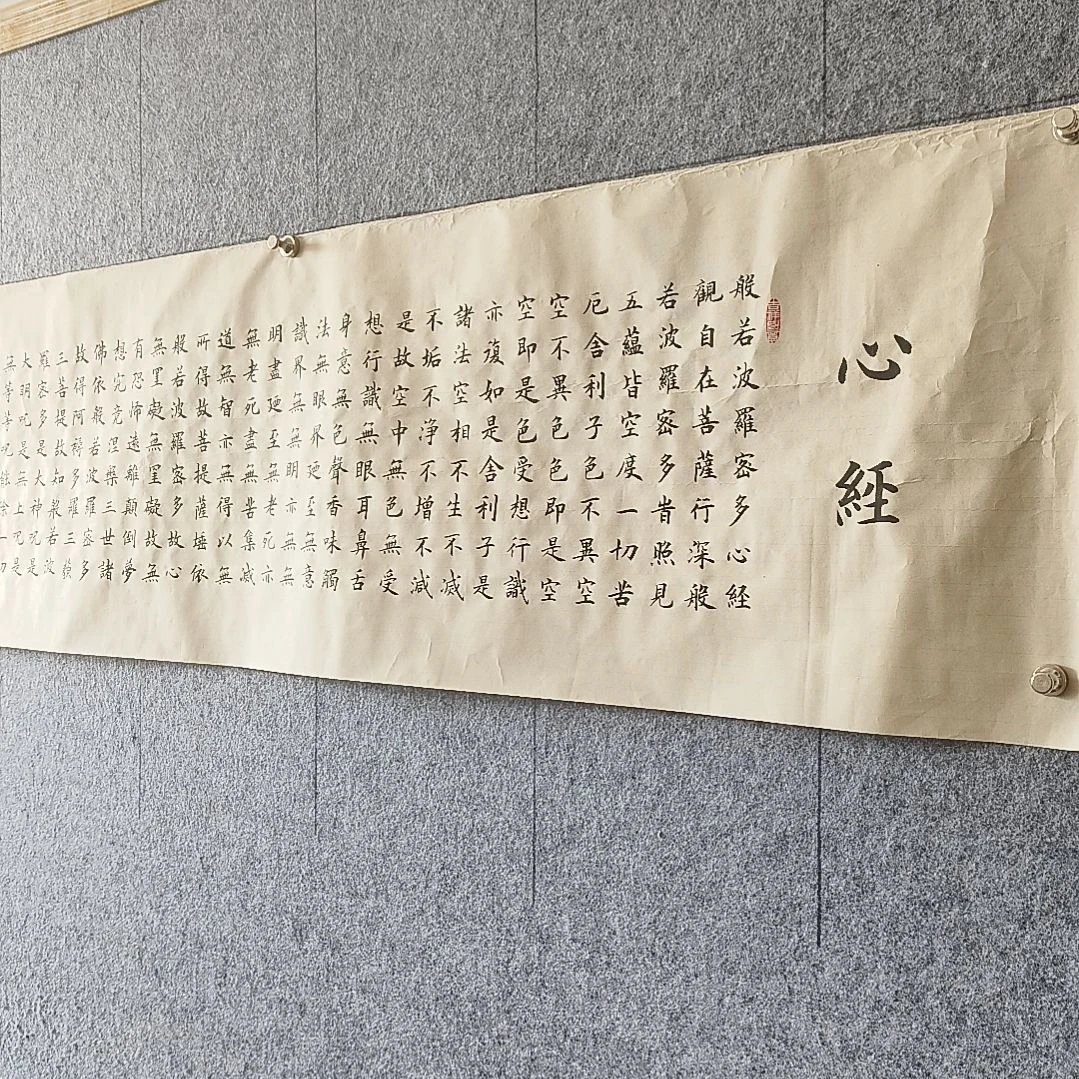 心經
般若波羅密多心経
觀自在菩薩行深般
若波羅密多旹照見
五蘊皆空度一切苦
厄舍利子色不異空
空不異色色即是空
空即是色受想行識
亦復如是舍利子是
諸法空相不生不滅
不垢不净不增不減
是故空中無色無受
想行識無眼耳鼻舌
身意無色聲香味觸
法無眼界廼至無意
識界無無明亦無無
明盡廼至無老死亦
無老死盡無苦集滅
道無智亦無得以無
所得故菩提薩埵依
般若波羅密多故心
無罣礙無罣礙故無
有恐怖遠離顛倒夢
想究竟涅槃三世諸
佛依般若波羅密多
故得阿耨多羅三藐
三菩提故知般若波
羅密多是大神呪是
大明呪是無上呪是
無等等呪能除一切